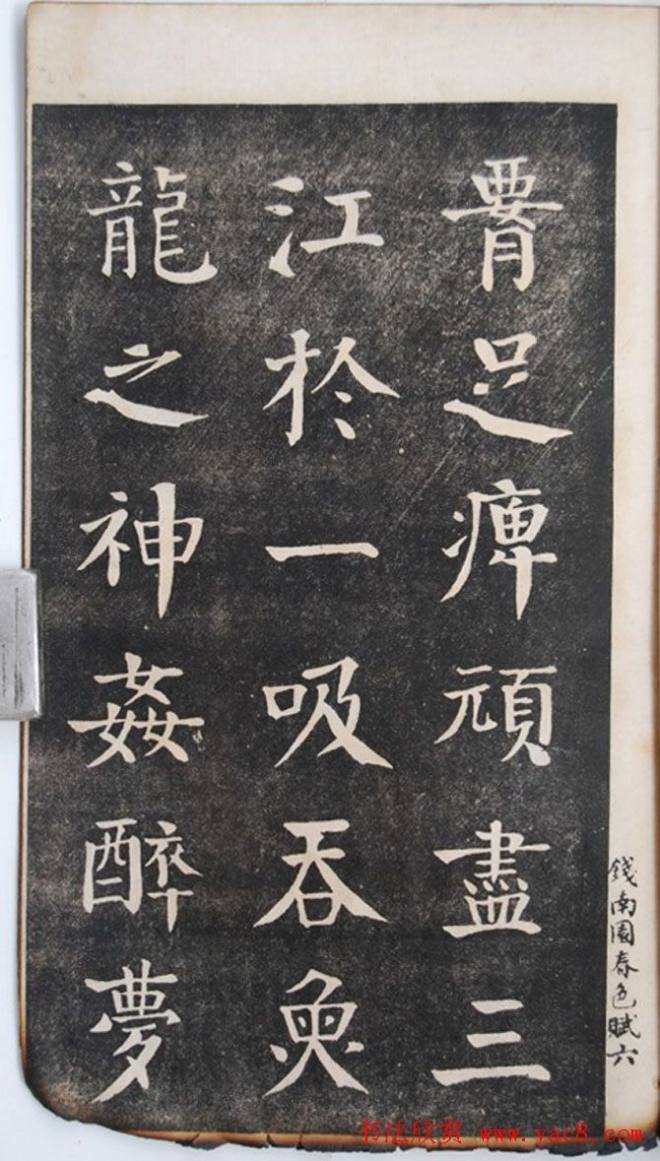 腰足痺頑盡三
江於一吸吞魚
龍之神姦醉夢
錢南園春色賦六
书法欣赏 www.yac8.com